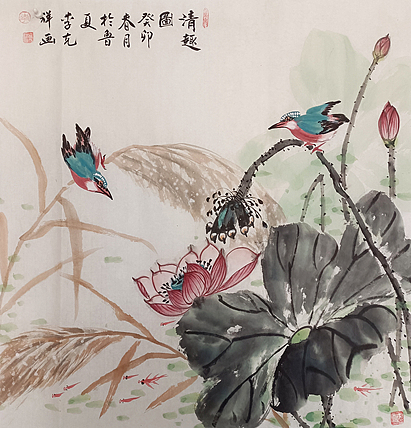 清趣
圖
癸卯
春月
於魯
夏
李克
祥画